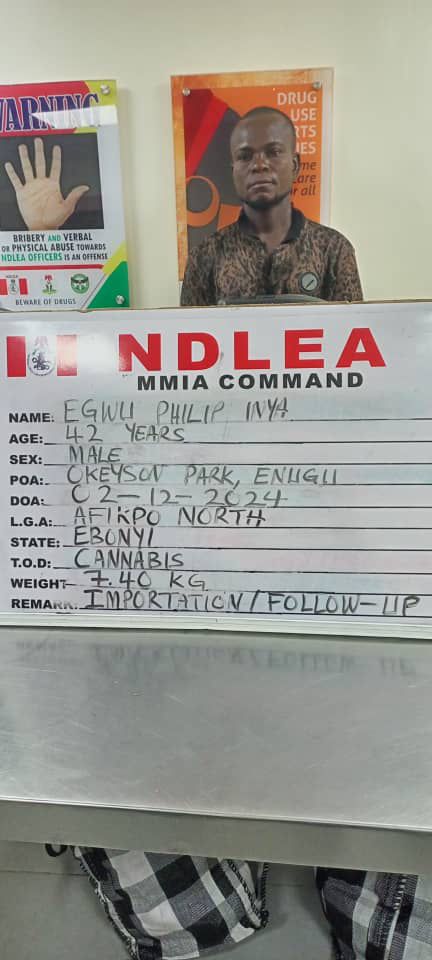 WARNING
BRIBERY AND VERBAL
OR PHYSICAL ABUSE TOWARDS
NDLEA OFFICERS IS AN OFFENSE
BEWARE OF DRUGS
DRUG
USE
for all
NDLEA
MMIA COMMAND
NAME: EGWU PHILIP INYA
AGE: 42 YEARS
SEX: MALE
POA: OKEYSON PARK, ENUGU
DOA: 02-12-2024
L.G.A: AFIKPO NORTH
STATE: EBONYI
T.O.D: CANNABIS
WEIGHT 7.40 KG
REMARK: IMPORTATION/FOLLOW-UP